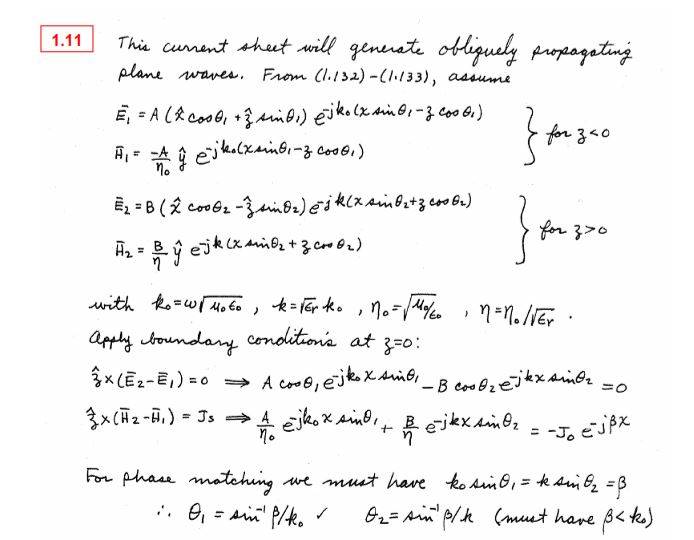 1.11 This current sheet will generate obliquely propagating
plane waves. From (1.132)-(1.133), assume
Ē₁ = A (x̂ cosθ₁ + ẑ sinθ₁) e^-jk₀(x sinθ₁ - z cosθ₁)
H̄₁ = -A/η₀ ŷ e^-jk₀(x sinθ₁ - z cosθ₁)
} for z<0
Ē₂ = B (x̂ cosθ₂ - ẑ sinθ₂) e^-jk(x sinθ₂ + z cosθ₂)
H̄₂ = B/η ŷ e^-jk(x sinθ₂ + z cosθ₂)
} for z>0
with k₀ = ω√μ₀ε₀ , k = √εr k₀ , η₀ = √μ₀/ε₀ , η = η₀/√εr .
Apply boundary conditions at z=0:
ẑ×(Ē₂-Ē₁) = 0 ⟹ A cosθ₁ e^-jk₀x sinθ₁ - B cosθ₂ e^-jkx sinθ₂ = 0
ẑ×(H̄₂-H̄₁) = Js ⟹ A/η₀ e^-jk₀x sinθ₁ + B/η e^-jkx sinθ₂ = -J₀ e^-jβx
For phase matching we must have k₀ sinθ₁ = k sinθ₂ = β
∴ θ₁ = sin⁻¹ β/k₀ ✓ θ₂ = sin⁻¹ β/k (must have β<k₀)